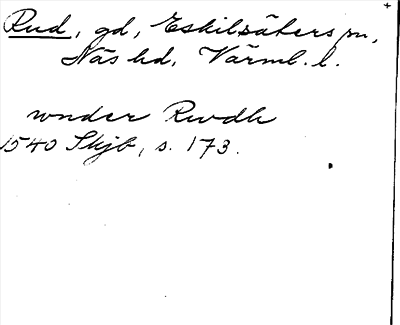 Rud, gd, Eskilsäters sn,
Näs hd, Värml. l.
wnder Rwdh
1540 Skjb, s. 173.